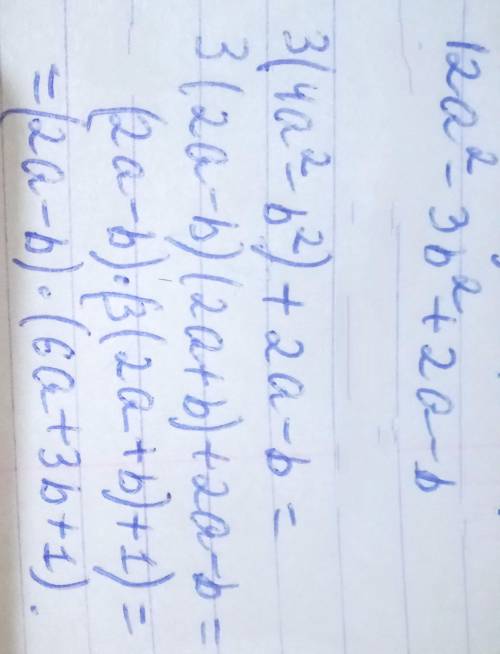 12a² - 3b² + 2a - b
3(4a² - b²) + 2a - b =
3(2a - b)(2a + b) + 2a - b =
(2a - b)·(3(2a + b) + 1) =
= (2a - b)·(6a + 3b + 1).